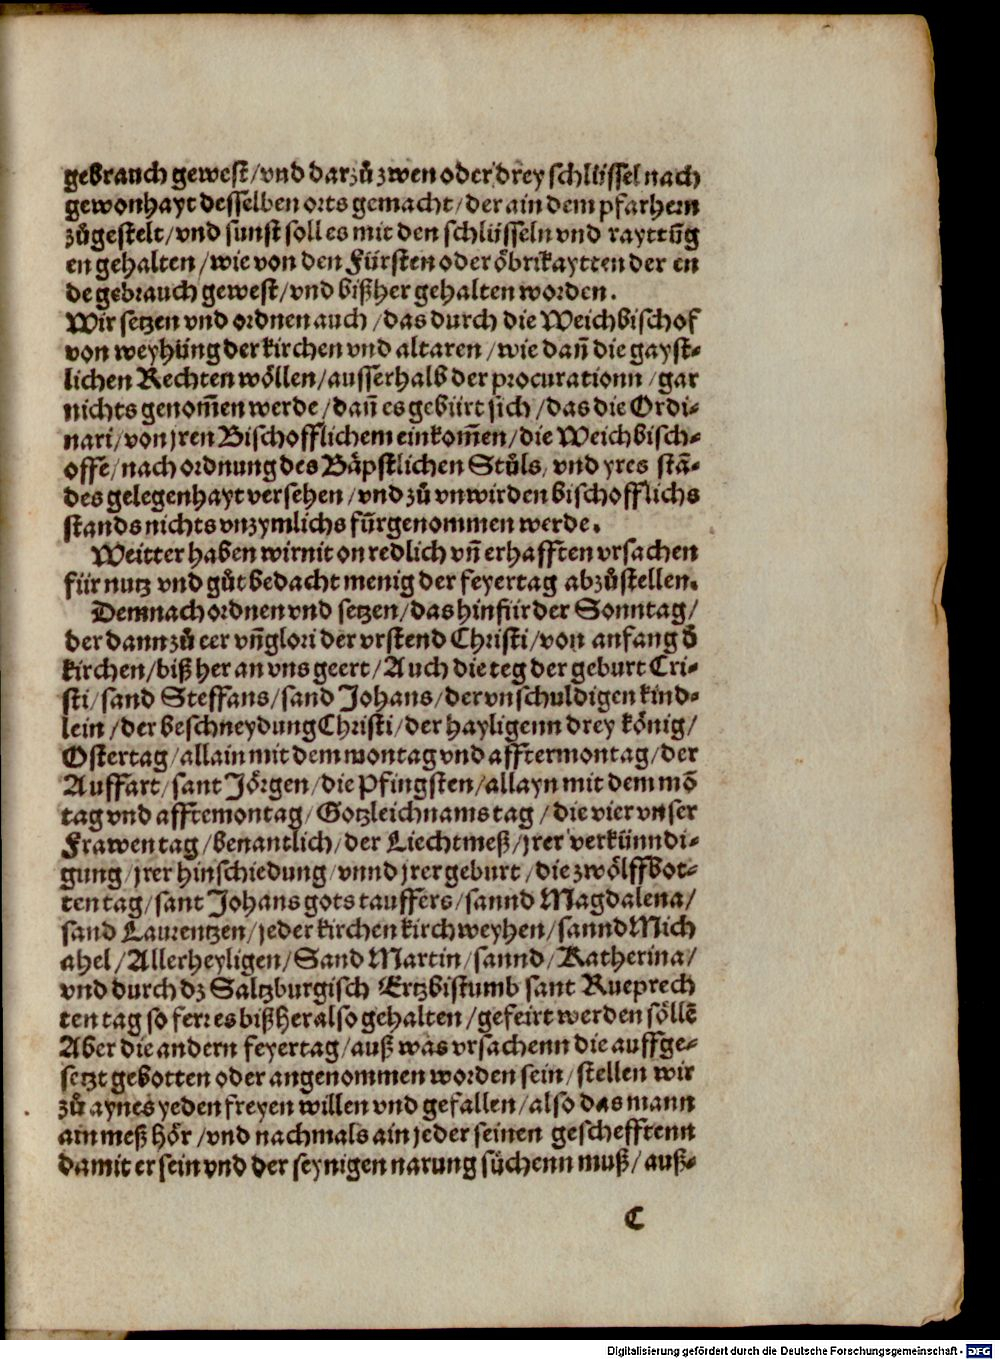 gebrauch gewest/vnd darzů zwen oder drey schlüssel nach
gewonhayt desselben orts gemacht/der ain dem pfarhern
zůgestelt/vnd sunst soll es mit den schlüsseln vnd rayttūg
en gehalten/wie von den Fürsten oder öbrikaytten der en
de gebrauch gewest/vnd bißher gehalten worden.
Wir setzen vnd ordnen auch/das durch die Weichbischof
von weyhūng der kirchen vnd altaren/wie dañ die gayst⸗
lichen Rechten wöllen/ausserhalb der procurationn/gar
nichts genom̄en werde/dañ es gebürt sich/das die Ordi⸗
nari/von jren Bischofflichem einkom̄en/die Weichbisch⸗
offe/nach ordnung des Bäpstlichen Stůls/vnd yres stā⸗
des gelegenhayt versehen/vnd zů vnwirden bischofflichs
stands nichts vnzymlichs fürgenommen werde.
Weitter haben wir nit on redlich vñ erhafften vrsachen
für nutz vnd gůt bedacht menig der feyertag abzůstellen.
Demnach ordnen vnd setzen/das hinfür der Sonntag/
der dann zů eer vñ glori der vrstend Christi/von anfang ď
kirchen/biß her an vns geert/Auch die teg der geburt Cri⸗
sti/sand Steffans/sand Johans/der vnschuldigen kind⸗
lein/der beschneydung Christi/der hayligenn drey könig/
Ostertag/allain mit dem montag vnd afftermontag/der
Auffart/sant Jörgen/die Pfingsten/allayn mit dem mō
tag vnd afftemontag/Gotzleichnams tag/die vier vnser
Frawen tag/benantlich/der Liechtmeß/jrer verkünndi⸗
gung/jrer hinschiedung/vnnd jrer geburt/die zwölffbot⸗
ten tag/sant Johans gots tauffers/sannd Magdalena/
sand Laurentzen/jeder kirchen kirchweyhen/sannd Mich
ahel/Allerheyligen/Sand Martin/sannd/Katherina/
vnd durch dz Saltzburgisch Ertzbistumb sant Rueprech
ten tag so ferr es bißher also gehalten/gefeirt werden söllē
Aber die andern feyertag/auß was vrsachenn die auffge⸗
setzt gebotten oder angenommen worden sein/stellen wir
zů aynes yeden freyen willen vnd gefallen/also das mann
am meß hör/vnd nachmals ain jeder seinen geschefftenn
damit er sein vnd der seynigen narung sůchenn muß/auß⸗
C
Digitalisierung gefördert durch die Deutsche Forschungsgemeinschaft - DFG